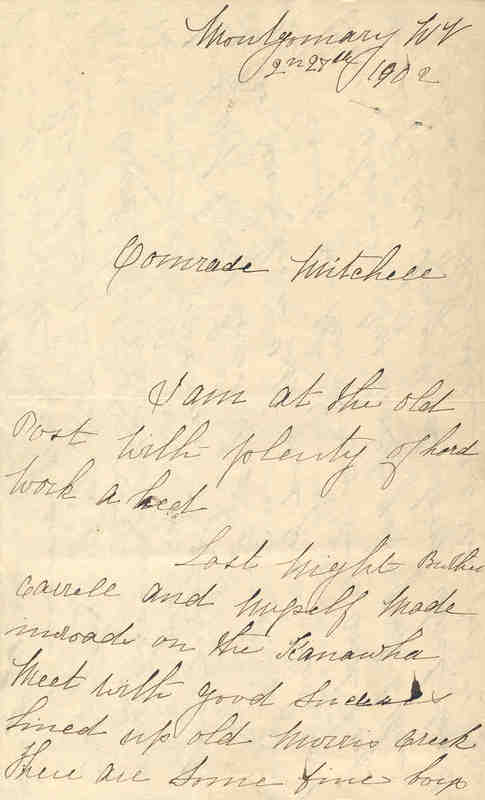 Montgomary W V
2nd 27th 1902
Comrade Mitchell
I am at the old
Post With plenty of hard
Work a hed
Last Night Buther
Carrell and Myself Made
inroade on the Kanawha
Meet With good Sucess
Lined up old Morris Creek
There are Some fine boys